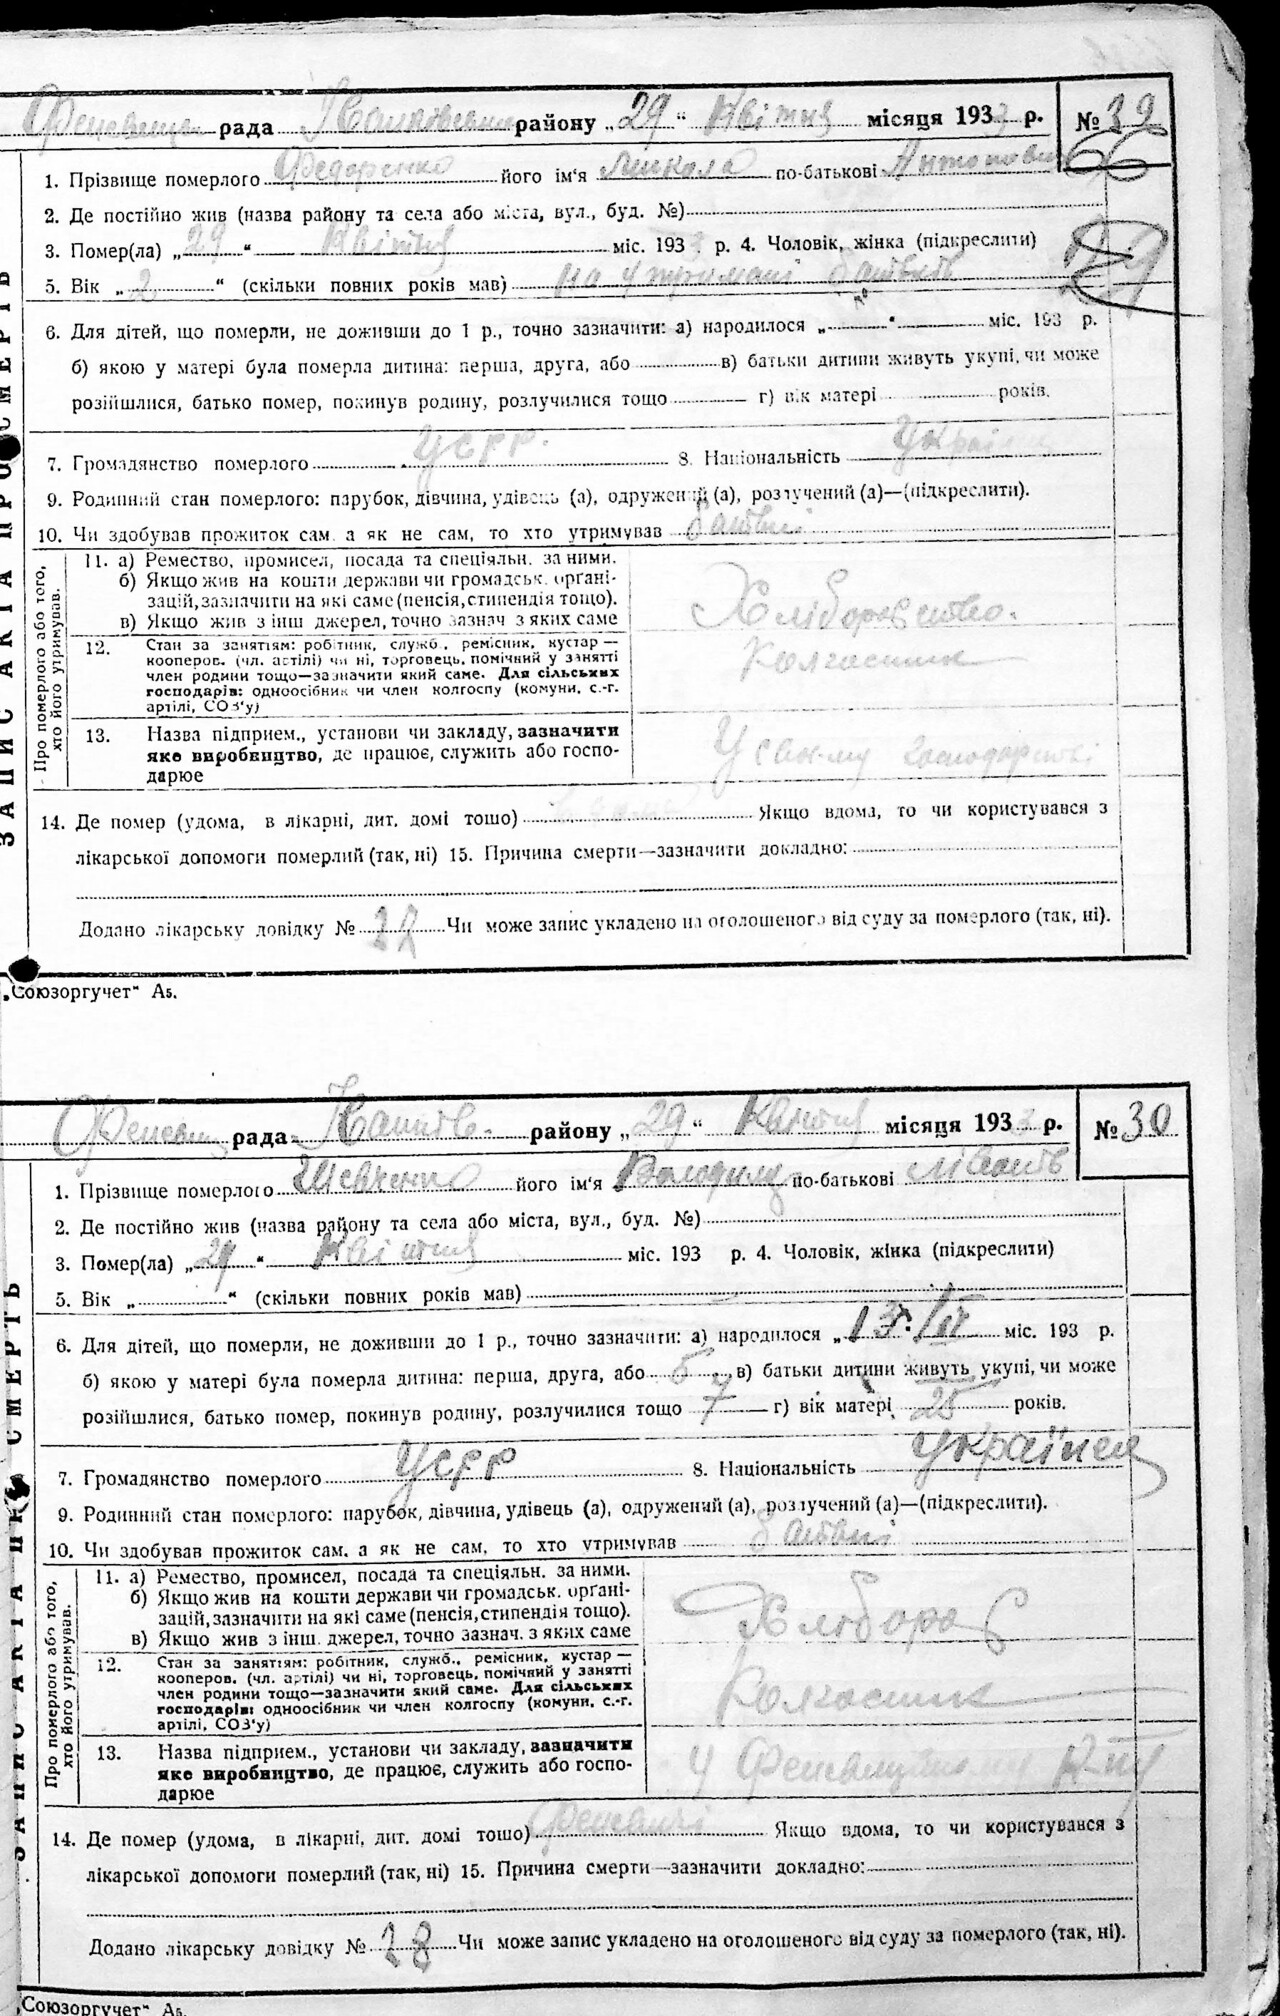 рада району „29“ Квітня місяця 1933 р. № 39
66
1. Прізвище померлого Федоренко його ім'я Микола по-батькові Антонович
2. Де постійно жив (назва району та села або міста, вул., буд. №)
3. Помер(ла) „29“ Квітня міс. 193 р. 4. Чоловік, жінка (підкреслити)
29
5. Вік „2“ (скільки повних років мав) на утримані батьків
6. Для дітей, що померли, не доживши до 1 р., точно зазначити: а) народилося „ “ міс. 193 р.
б) якою у матері була померла дитина: перша, друга, або в) батьки дитини живуть укупі, чи може
розійшлися, батько помер, покинув родину, розлучилися тощо г) вік матері років.
7. Громадянство померлого УСРР. 8. Національність Україн
9. Родинний стан померлого: парубок, дівчина, удівець (а), одружений (а), розлучений (а)—(підкреслити).
10. Чи здобував прожиток сам, а як не сам, то хто утримував батьки
ЗАПИС АКТА ПРО СМЕРТЬ
Про померлого або того, хто його утримував.
11. а) Ремество, промисел, посада та спеціяльн. за ними.
б) Якщо жив на кошти держави чи громадськ. органі-
зацій, зазначити на які саме (пенсія, стипендія тощо).
в) Якщо жив з інш джерел, точно зазнач з яких саме
Хліборобство.
12. Стан за занятіям: робітник, служб., ремісник, кустар—
кооперов. (чл. артілі) чи ні, торговець, помічний у занятті
член родини тощо—зазначити який саме. Для сільських
господарів: одноосібник чи член колгоспу (комуни, с.-г.
артілі, СОЗ'у)
Колгосник
13. Назва підприєм., установи чи закладу, зазначити
яке виробництво, де працює, служить або госпо-
дарює
У своєму господарстві
14. Де помер (удома, в лікарні, дит. домі тощо) вдома Якщо вдома, то чи користувався з
лікарської допомоги померлий (так, ні) 15. Причина смерти—зазначити докладно:
Додано лікарську довідку № Чи може запис укладено на оголошеного від суду за померлого (так, ні).
„Союзоргучет“ А5.
рада району „29“ Квітня місяця 1933 р. № 30
1. Прізвище померлого Шевченко його ім'я Володимир по-батькові
2. Де постійно жив (назва району та села або міста, вул., буд. №)
3. Помер(ла) „29“ Квітня міс. 193 р. 4. Чоловік, жінка (підкреслити)
5. Вік „ “ (скільки повних років мав)
6. Для дітей, що померли, не доживши до 1 р., точно зазначити: а) народилося „13“ міс. 193 р.
б) якою у матері була померла дитина: перша, друга, або 5 в) батьки дитини живуть укупі, чи може
розійшлися, батько помер, покинув родину, розлучилися тощо 7 г) вік матері 25 років.
7. Громадянство померлого УСРР 8. Національність Українец
9. Родинний стан померлого: парубок, дівчина, удівець (а), одружений (а), розлучений (а)—(підкреслити).
10. Чи здобував прожиток сам, а як не сам, то хто утримував батьки
ЗАПИС АКТА ПРО СМЕРТЬ
Про померлого або того, хто його утримував.
11. а) Ремество, промисел, посада та спеціяльн. за ними.
б) Якщо жив на кошти держави чи громадськ. органі-
зацій, зазначити на які саме (пенсія, стипендія тощо).
в) Якщо жив з інш. джерел, точно зазнач. з яких саме
Хлібороб
12. Стан за занятіям: робітник, служб., ремісник, кустар—
кооперов. (чл. артілі) чи ні, торговець, помічний у занятті
член родини тощо—зазначити який саме. Для сільських
господарів: одноосібник чи член колгоспу (комуни, с.-г.
артілі, СОЗ'у)
Колгосник
13. Назва підприєм., установи чи закладу, зазначити
яке виробництво, де працює, служить або госпо-
дарює
14. Де помер (удома, в лікарні, дит. домі тощо) Якщо вдома, то чи користувався з
лікарської допомоги померлий (так, ні) 15. Причина смерти—зазначити докладно:
Додано лікарську довідку № 28 Чи може запис укладено на оголошеного від суду за померлого (так, ні).
„Союзоргучет“ А5.